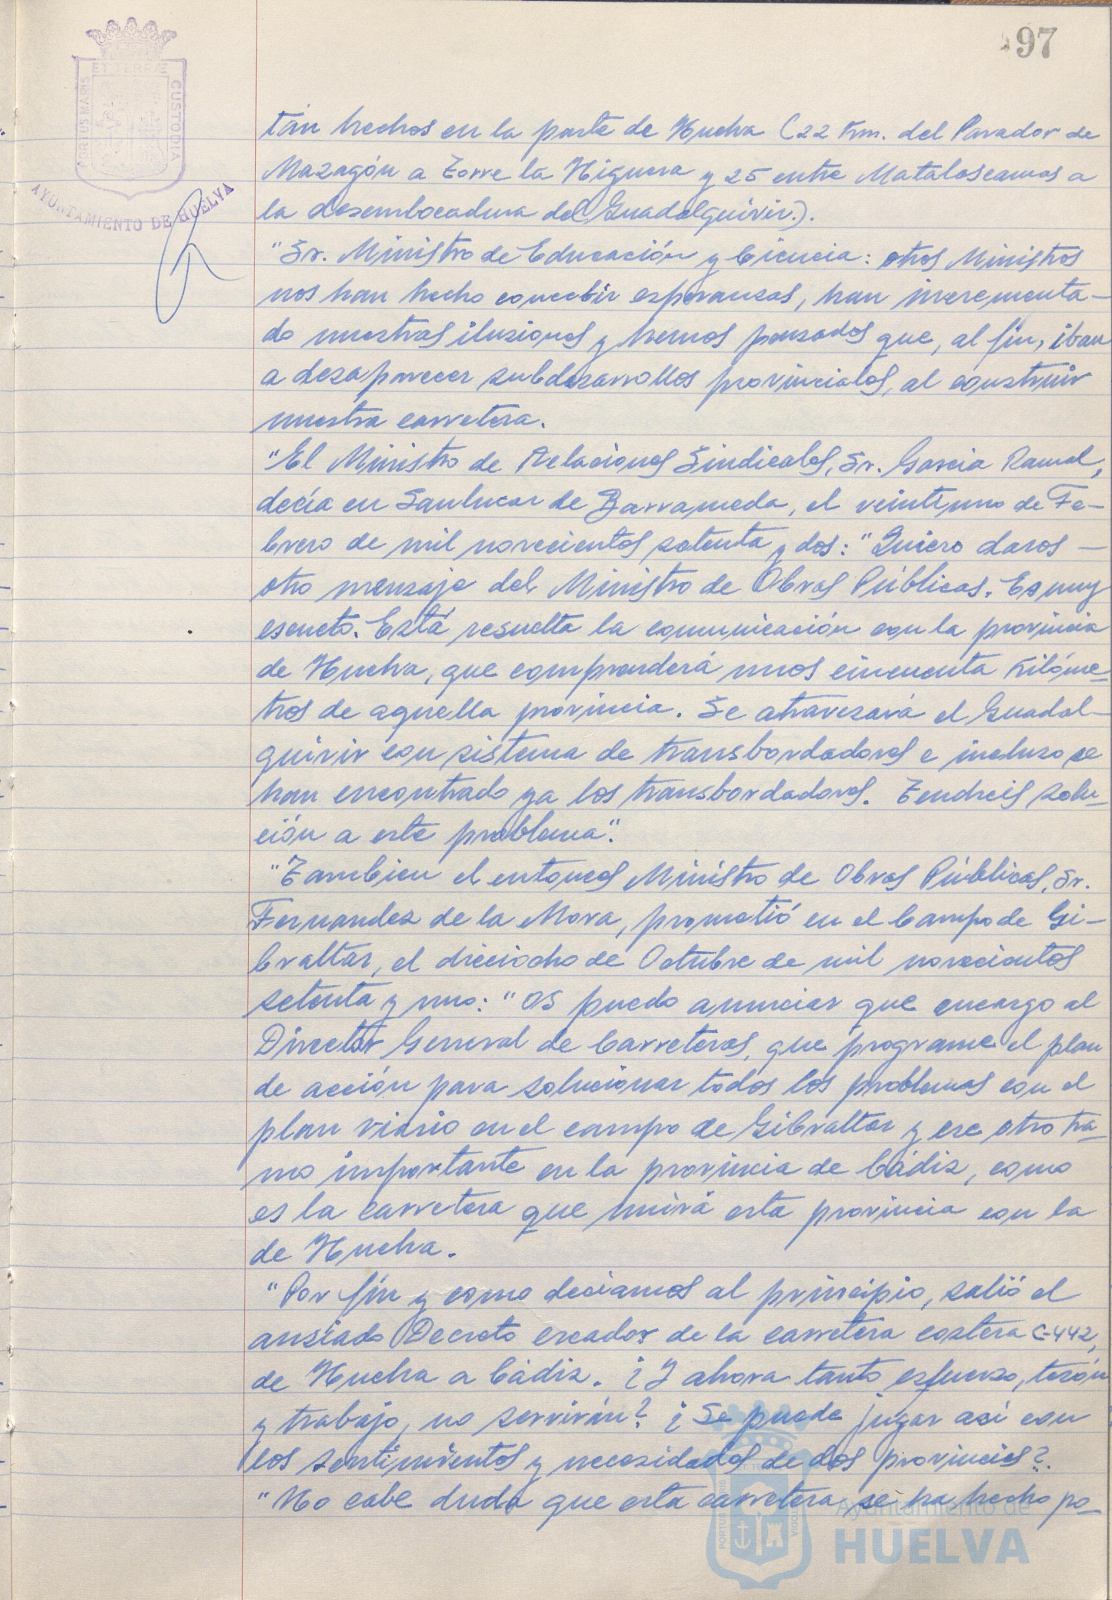 97
ET TERRAE
PORTUS MARIS
CUSTODIA
AYUNTAMIENTO DE HUELVA
tán hechos en la parte de Huelva (22 Km. del Parador de
Mazagón a Torre la Higuera y 25 entre Matalascañas a
la desembocadura del Guadalquivir.).
"Sr. Ministro de Educación y Ciencia: otros Ministros
nos han hecho concebir esperanzas, han incrementa-
do nuestras ilusiones y hemos pensados que, al fin, iban
a desaparecer subdesarrollos provinciales, al construir
nuestra carretera.
"El Ministro de Relaciones Sindicales, Sr. Garcia Ramal,
decía en Sanlucar de Barrameda, el veintiuno de Fe-
brero de mil novecientos setenta y dos: "Quiero daros -
otro mensaje del Ministro de Obras Públicas. Es muy
escueto. Está resuelta la comunicación con la provincia
de Huelva, que comprenderá unos cincuenta kilóme-
tros de aquella provincia. Se atravesará el Guadal-
quivir con sistema de transbordadores e incluso se
han encontrado ya los transbordadores. Tendreis solu-
ción a este problema".
"Tambien el entonces Ministro de Obras Públicas, Sr.
Fernandez de la Mora, prometió en el Campo de Gi-
braltar, el dieciocho de Octubre de mil novecientos
setenta y uno: "Os puedo anunciar que encargo al
Director General de Carreteras, que programe el plan
de acción para solucionar todos los problemas con el
plan viario en el campo de Gibraltar y ese otro tra-
mo importante en la provincia de Cádiz, como
es la carretera que unirá esta provincia con la
de Huelva.
"Por fín y como deciamos al principio, salió el
ansiado Decreto creador de la carretera costera C-442,
de Huelva a Cádiz. ¿Y ahora tanto esfuerzo, tesón
y trabajo, no servirán? ¿Se puede jugar así con
los sentimientos y necesidades de dos provincias?.
"No cabe duda que esta carretera, se ha hecho po-
Ayuntamiento de
HUELVA